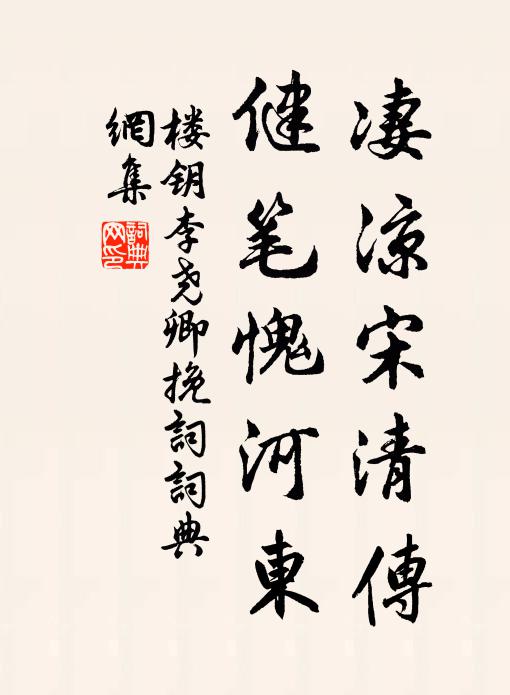 凄涼宋清傳
健笔愧河東
楼钥李尧卿挽詞詞典
網集
詞典网印